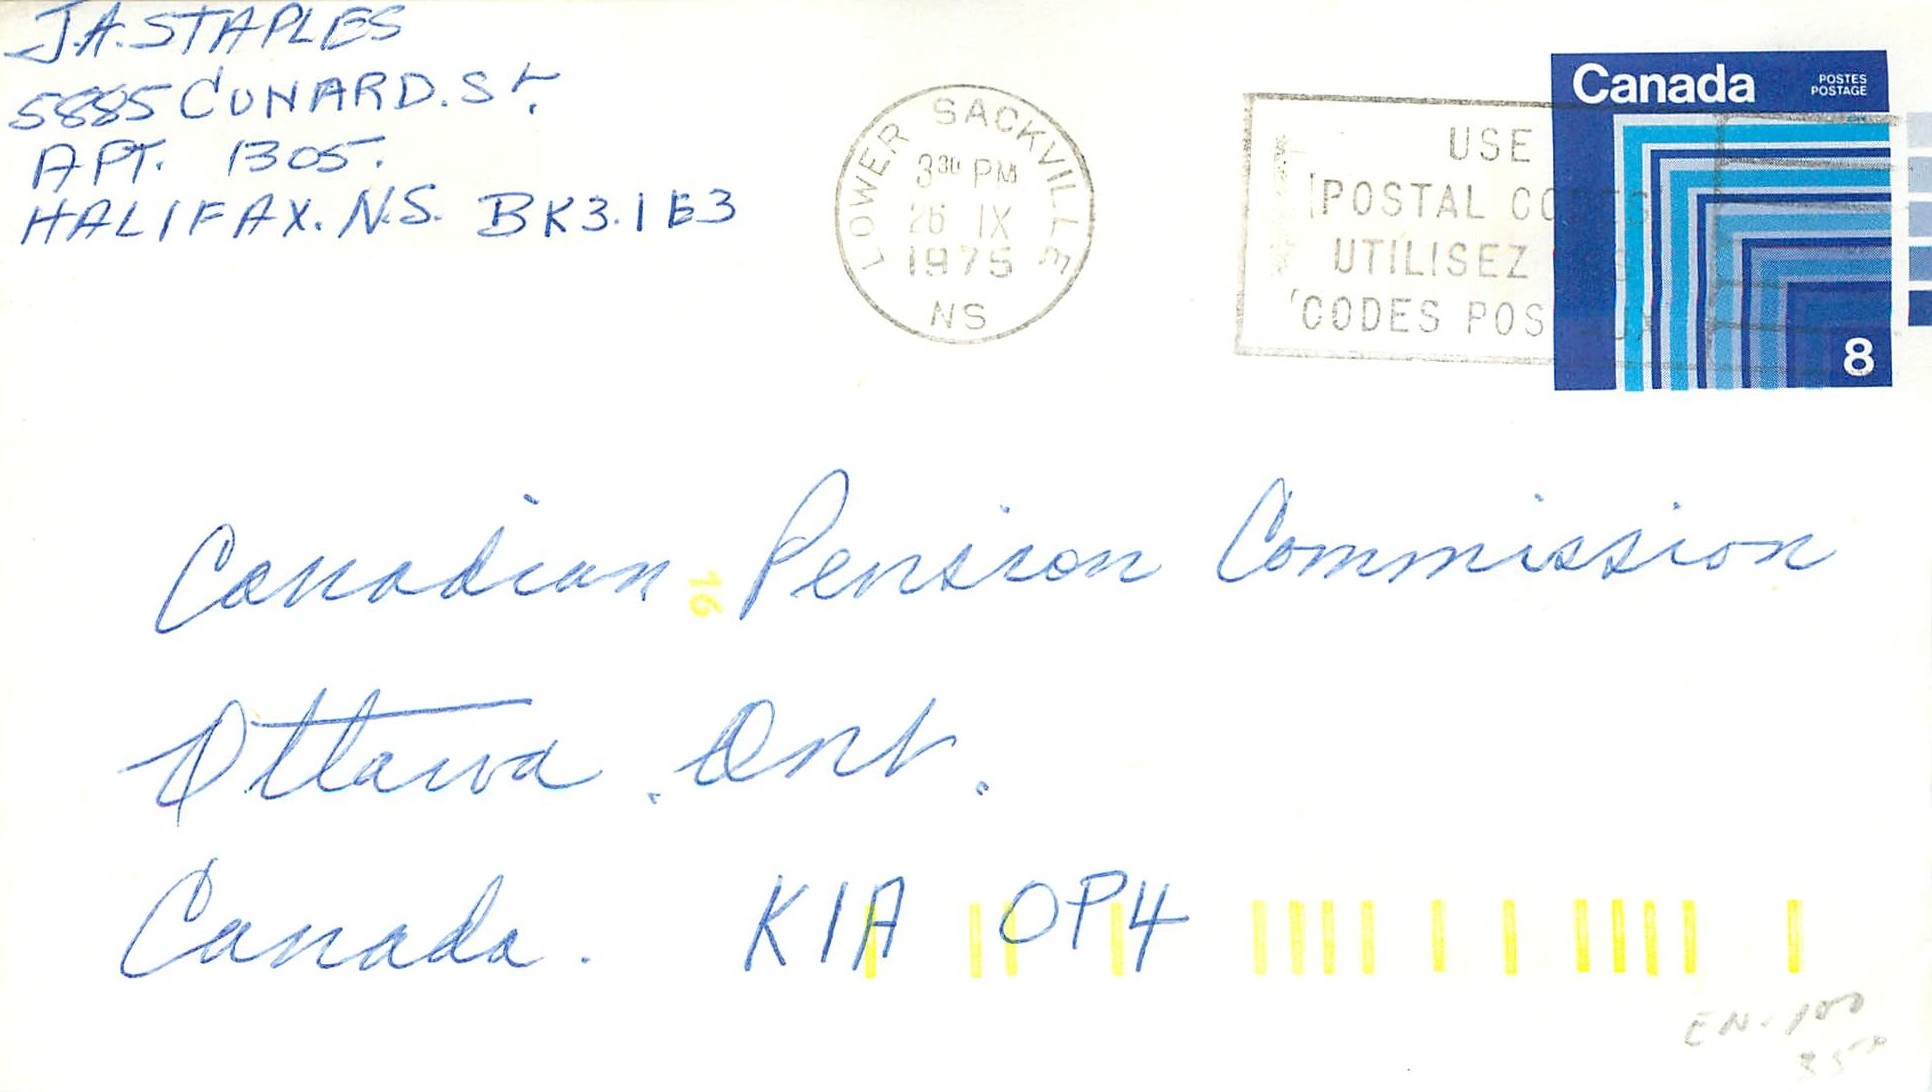 J.A. STAPLES
5885 CUNARD. St.
APT. 1305.
HALIFAX. N.S. BK3.1E3
LOWER SACKVILLE
3 30 PM
26 IX
1975
NS
USE
POSTAL CODES
UTILISEZ
CODES POSTAUX
Canada POSTES
POSTAGE
8
Canadian Pension Commission
16
Ottawa. Ont.
Canada. K1A 0P4
EN-100